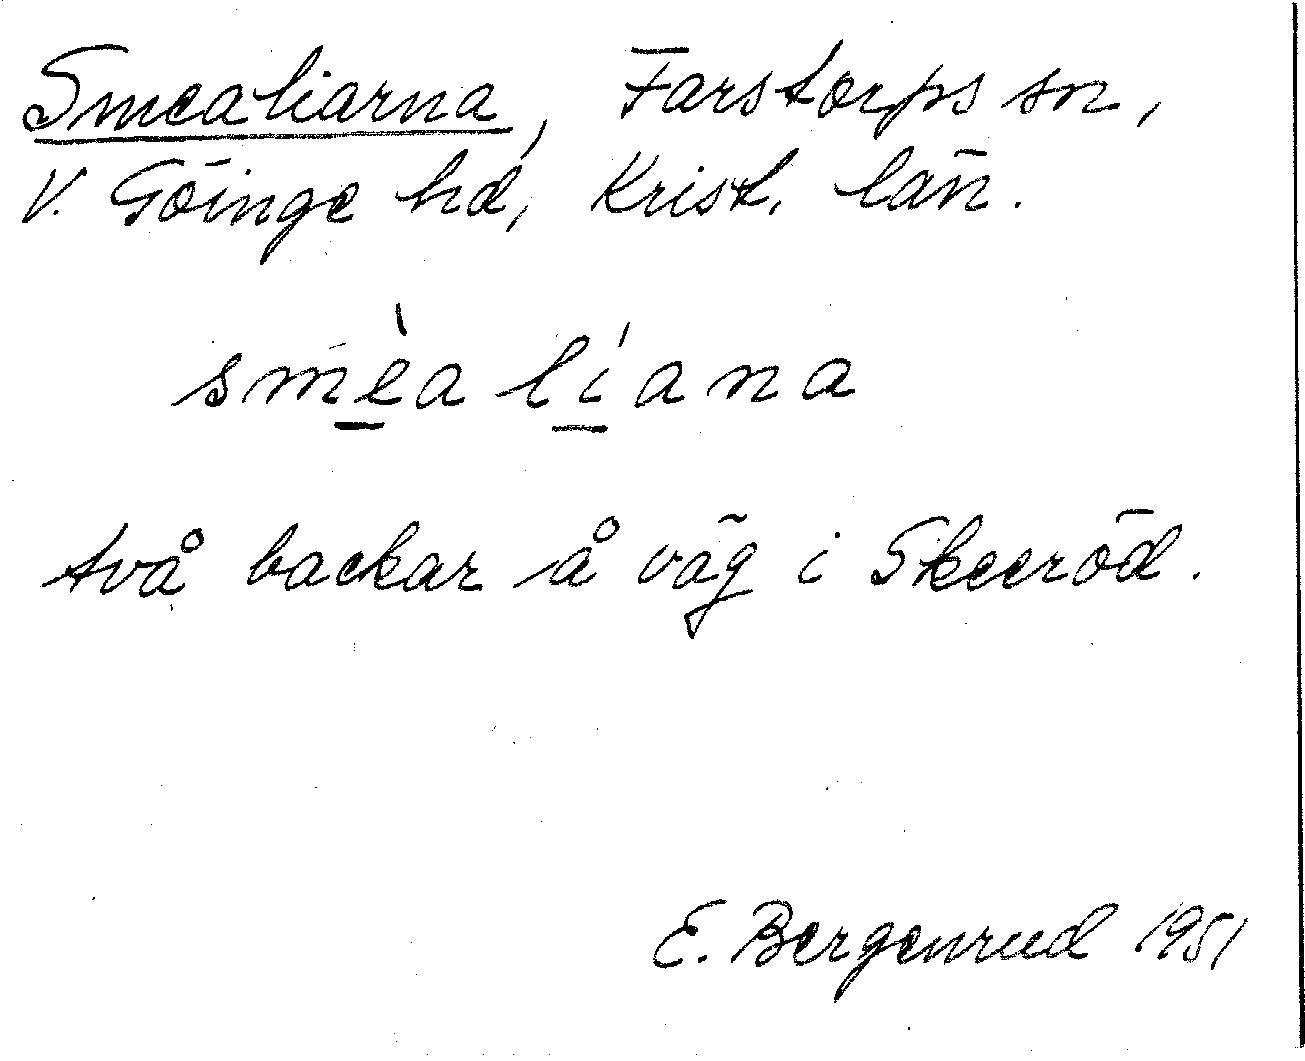 Smealiarna, Farstorps sn,
V. Göinge hd, Krist. län.
smèa líana
två backar å väg i Skeeröd.
E. Bergenrud 1951